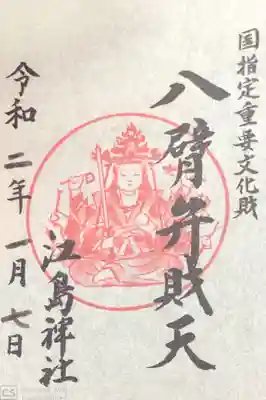 国指定重要文化財
八臂弁財天
江島神社
令和二年一月七日
CS